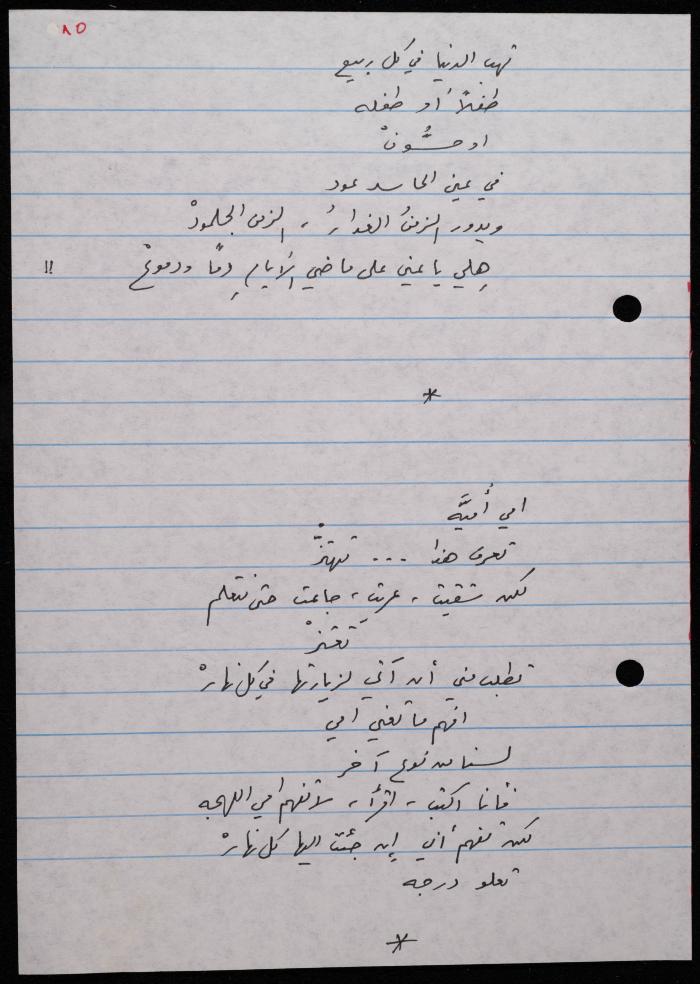 ٨٥
تهب الدنيا في كل ربيع
طفلاً أو طفله
او حسُّونْ
في عين الحاسد عود
ويدور الزمنُ الغدارُ، الزمن الجلمودْ
هِلي يا عيني على ماضي الأيامِ دمًا ودموعْ !!
*
امي أُميَّه
تعرف هذا ... تهتزّْ
لكن شقيت، عريت، جاعت حتى نتعلم
تعتزْ
تطلب مني أن آتي لزيارتها في كل نهارْ
افهم ما تعني امي
لسنا من نوع آخر
فأنا اكتب، اقرأ، لا تفهم امي اللهجه
لكن تفهم أني إن جئت اليها كل نهارْ
تعلو درجه
*